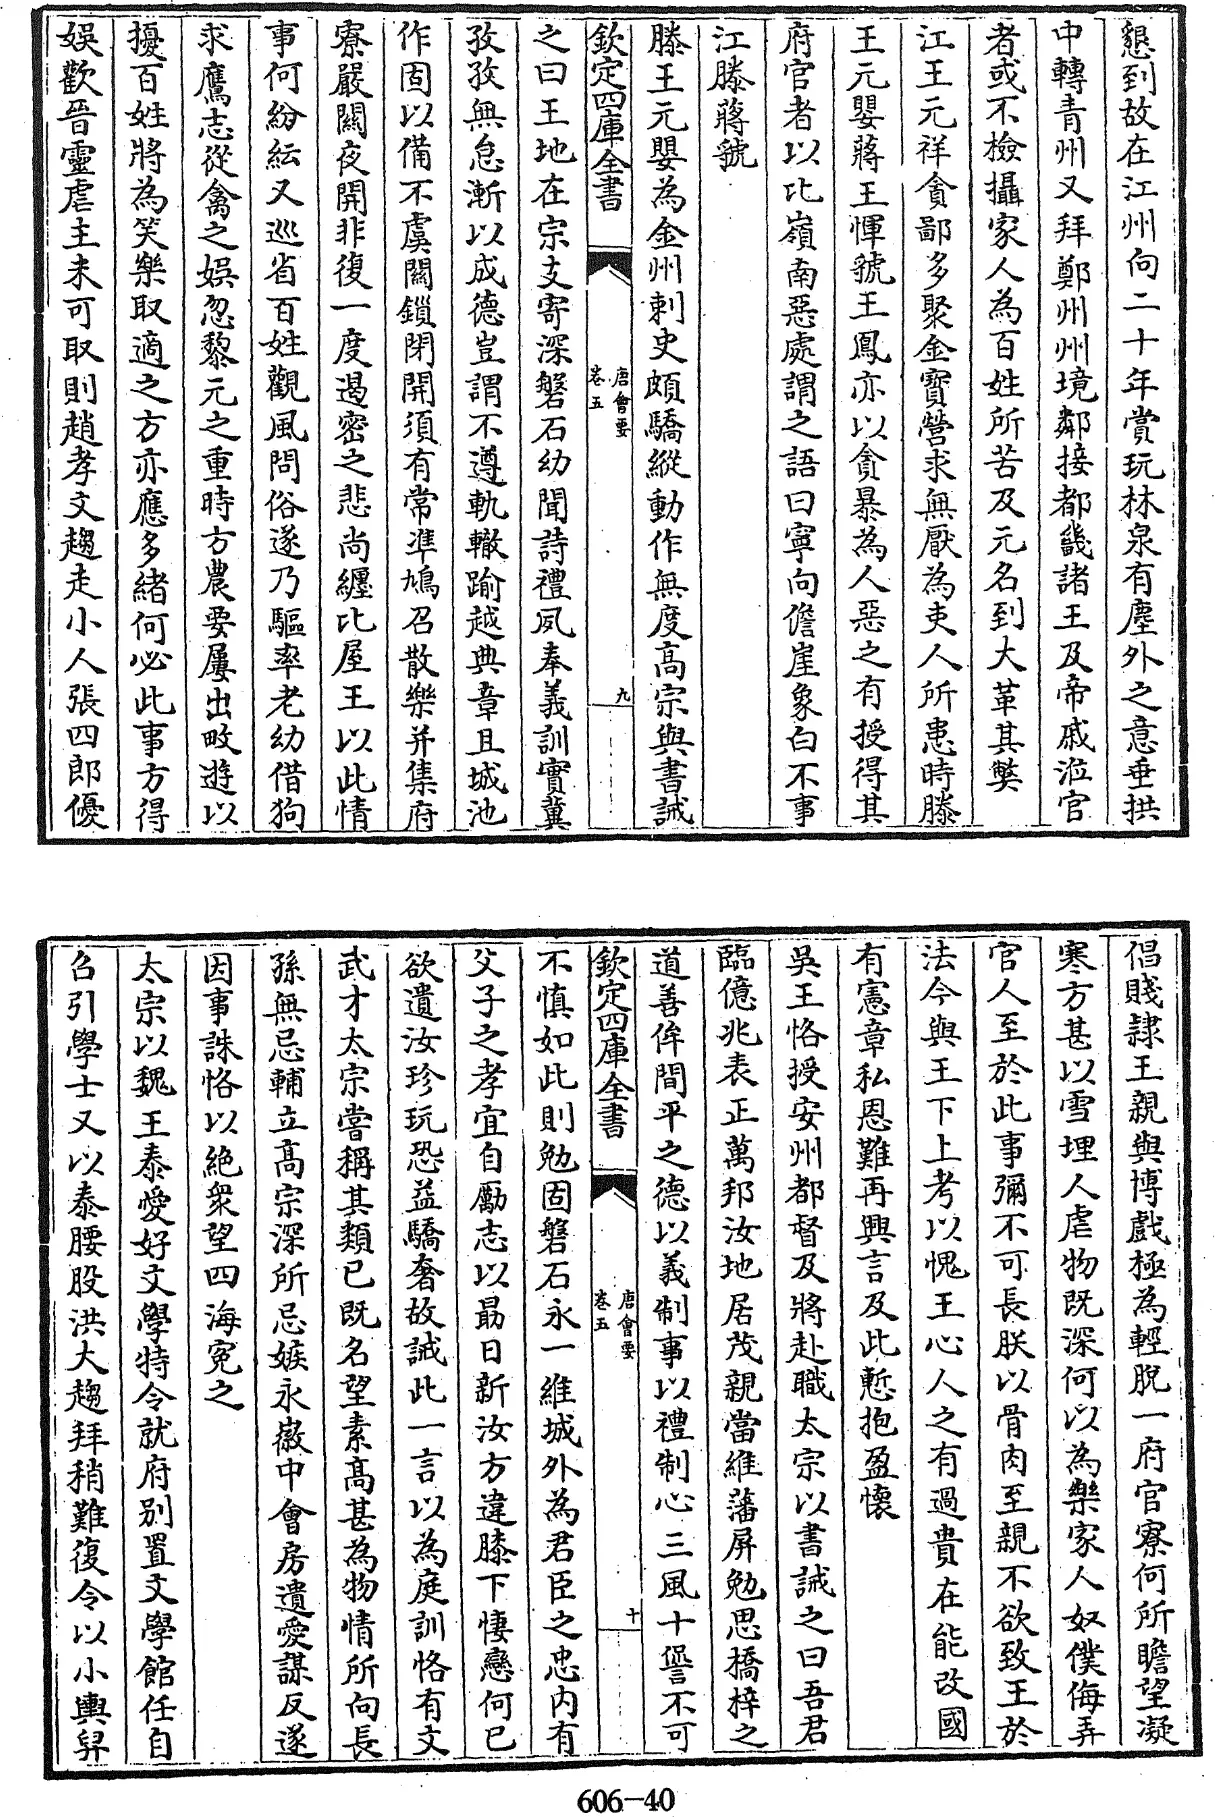 懇到故在江州向二十年賞玩林泉有塵外之意垂拱
中轉青州又拜鄭州州境鄰接都畿諸王及帝戚涖官
者或不檢攝家人為百姓所苦及元名到大革其弊
江王元祥貪鄙多聚金寶營求無厭為吏人所患時滕
王元嬰蔣王惲虢王鳳亦以貪暴為人惡之有授得其
府官者以比嶺南惡處謂之語曰寧向儋崖象白不事
江滕蔣虢
滕王元嬰為金州刺史頗驕縱動作無度高宗與書誡
欽定四庫全書
唐會要
卷五
九
之曰王地在宗支寄深磐石幼聞詩禮夙奉義訓實冀
孜孜無怠漸以成德豈謂不遵軌轍踰越典章且城池
作固以備不虞關鎖閉開須有常準鳩召散樂并集府
寮嚴關夜開非復一度遏密之悲尚纏比屋王以此情
事何紛紜又巡省百姓觀風問俗遂乃驅率老幼借狗
求鷹志從禽之娛忽黎元之重時方農要屢出畋遊以
擾百姓將為笑樂取適之方亦應多緒何必此事方得
娛歡晉靈虐主未可取則趙孝文趨走小人張四郎優
倡賤隷王親與博戲極為輕脫一府官寮何所瞻望凝
寒方甚以雪埋人虐物既深何以為樂家人奴僕侮弄
官人至於此事彌不可長朕以骨肉至親不欲致王於
法今與王下上考以愧王心人之有過貴在能改國
有憲章私恩難再興言及此慙抱盈懷
吳王恪授安州都督及將赴職太宗以書誡之曰吾君
臨億兆表正萬邦汝地居茂親當維藩屏勉思橋梓之
道善侔間平之德以義制事以禮制心三風十愆不可
欽定四庫全書
唐會要
卷五
十
不慎如此則勉固磐石永一維城外為君臣之忠內有
父子之孝宜自勵志以勗日新汝方違膝下悽戀何已
欲遺汝珍玩恐益驕奢故誡此一言以為庭訓恪有文
武才太宗嘗稱其類已既名望素高甚為物情所向長
孫無忌輔立高宗深所忌嫉永徽中會房遺愛謀反遂
因事誅恪以絶衆望四海冤之
太宗以魏王泰愛好文學特令就府別置文學館任自
召引學士又以泰腰股洪大趨拜稍難復令以小輿舁
606-40